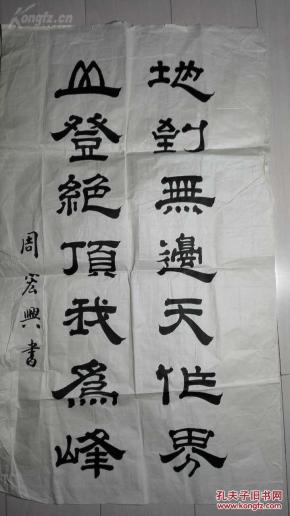 地到無邊天作界
山登絕頂我為峰
周宏興書
Kongfz.com
孔夫子旧书网
www.kongfz.com